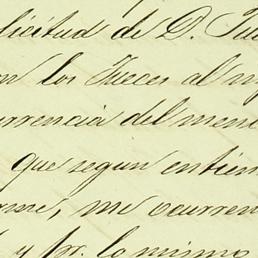 licitud de D. Ju
los Jueces al
urrencia del
que segun entien
rme, me ocurren
y pr. lo mismo